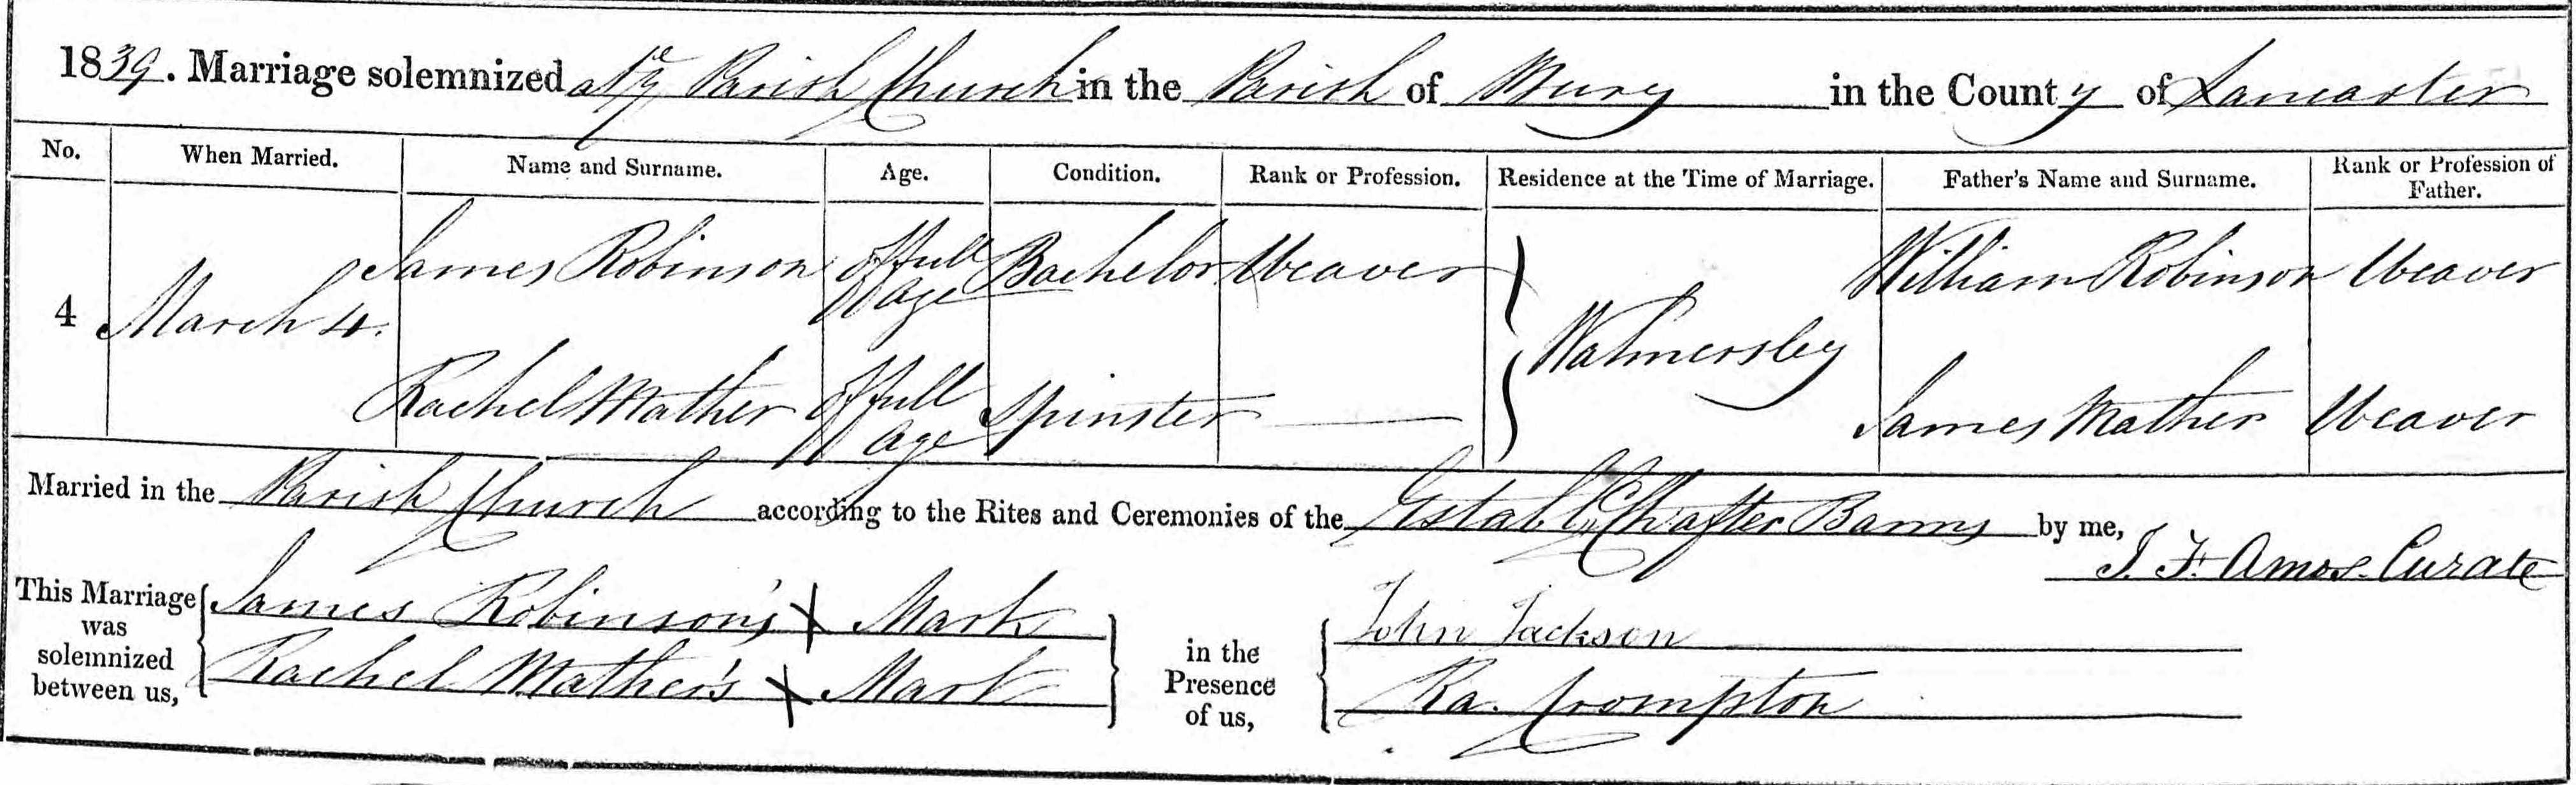 1839. Marriage solemnized at ye Parish Church in the Parish of Bury in the County of Lancaster
No. When Married. Name and Surname. Age. Condition. Rank or Profession. Residence at the Time of Marriage. Father's Name and Surname. Rank or Profession of Father.
4 March 4. James Robinson of full Age Bachelor Weaver Walmersley William Robinson Weaver
Rachel Mather of full Age Spinster — James Mather Weaver
Married in the Parish Church according to the Rites and Ceremonies of the Establd Ch after Banns by me,
J. F. Amos. Curate
This Marriage was solemnized between us, James Robinson's X Mark in the Presence of us, John Jackson
Rachel Mather's X Mark Ra. Crompton